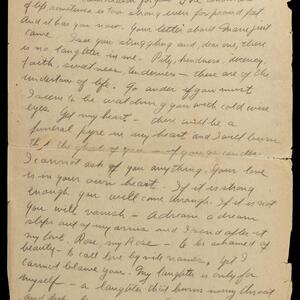 of life sometimes is too strong, even for proud feet
And it has you now. Your letter about Marie just
came. I see you struggling and, dear one, there
is no laughter in me. Pity, kindness, decency,
faith, sweetness, tenderness — these are of the
undertow of life. Go under if you must
I seem to be watching you with cold wise
eyes. Yet my heart — there will be a
funeral pyre in my heart and I will burn
the ghost of you — if you go under.
I cannot ask of you anything. Your love
is in your own heart. If it is strong
enough you will come through. If it is not
you will vanish — A dream a dream
slips out of my arms and I send after it
my love. Rose, my Rose — to be ashamed of
beauty — to call love by vile names. Yet I
cannot blame you. My laughter is only for
myself — a laughter that burns my throat
And